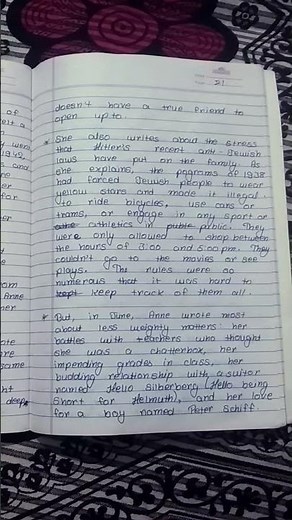 21
doesn't have a true friend to
open up to.
* She also writes about the stress
that Hitler's recent anti-Jewish
laws have put on the family. As
she explains, the pogroms of 1938
had forced Jewish people to wear
yellow stars and made it illegal
to ride bicycles, use cars or
trams, or engage in any sport or
athletics in public. They
were only allowed to shop between
the hours of 3:00 and 5:00 pm. They
couldn't go to the movies or see
plays. The rules were so
numerous that it was hard to
kept keep track of them all.
* But, in June, Anne wrote most
about less weighty matters: her
battles with teachers who thought
she was a chatterbox, her
impending grades in class, her
budding relationship with a suitor
named Hello Silberberg (Hello being
short for Helmuth), and her love
for a boy named Peter Schiff